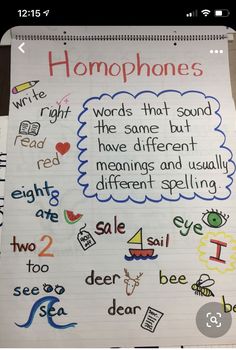 12:15
Homophones
write
right
words that sound
the same but
have different
meanings and usually
different spelling.
read
red
eight 8
ate
sale
sail
eye
I
two 2
too
deer
dear
bee
be
see
sea